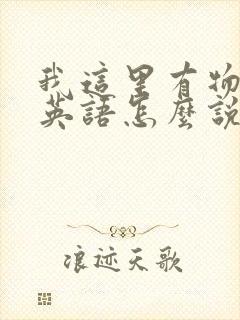 我這里有物
英語怎麼說
浪迹天歌